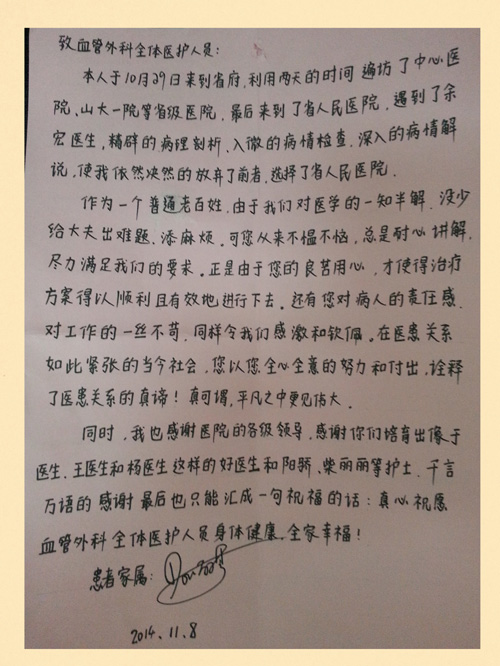 致血管外科全体医护人员：
本人于10月29日来到省府，利用两天的时间遍访了中心医
院、山大一院等省级医院，最后来到了省人民医院，遇到了余
宏医生，精辟的病理剖析、入微的病情检查、深入的病情解
说，使我依然决然的放弃了前者，选择了省人民医院．
作为一个普通老百姓，由于我们对医学的一知半解．没少
给大夫出难题．添麻烦．可您从来不愠不恼，总是耐心讲解．
尽力满足我们的要求。正是由于您的良苦用心，才使得治疗
方案得以顺利且有效地进行下去。还有您对病人的责任感．
对工作的一丝不苟，同样令我们感激和钦佩。在医患关系
如此紧张的当今社会，您以您全心全意的努力和付出，诠释
了医患关系的真谛！真可谓，平凡之中更见伟大．
同时，我也感谢医院的各级领导，感谢你们培育出像于
医生、王医生和杨医生这样的好医生和阳骄、柴丽丽等护士．千言
万语的感谢最后也只能汇成一句祝福的话：真心祝愿
血管外科全体医护人员身体健康 全家幸福！
患者家属：
2014.11.8